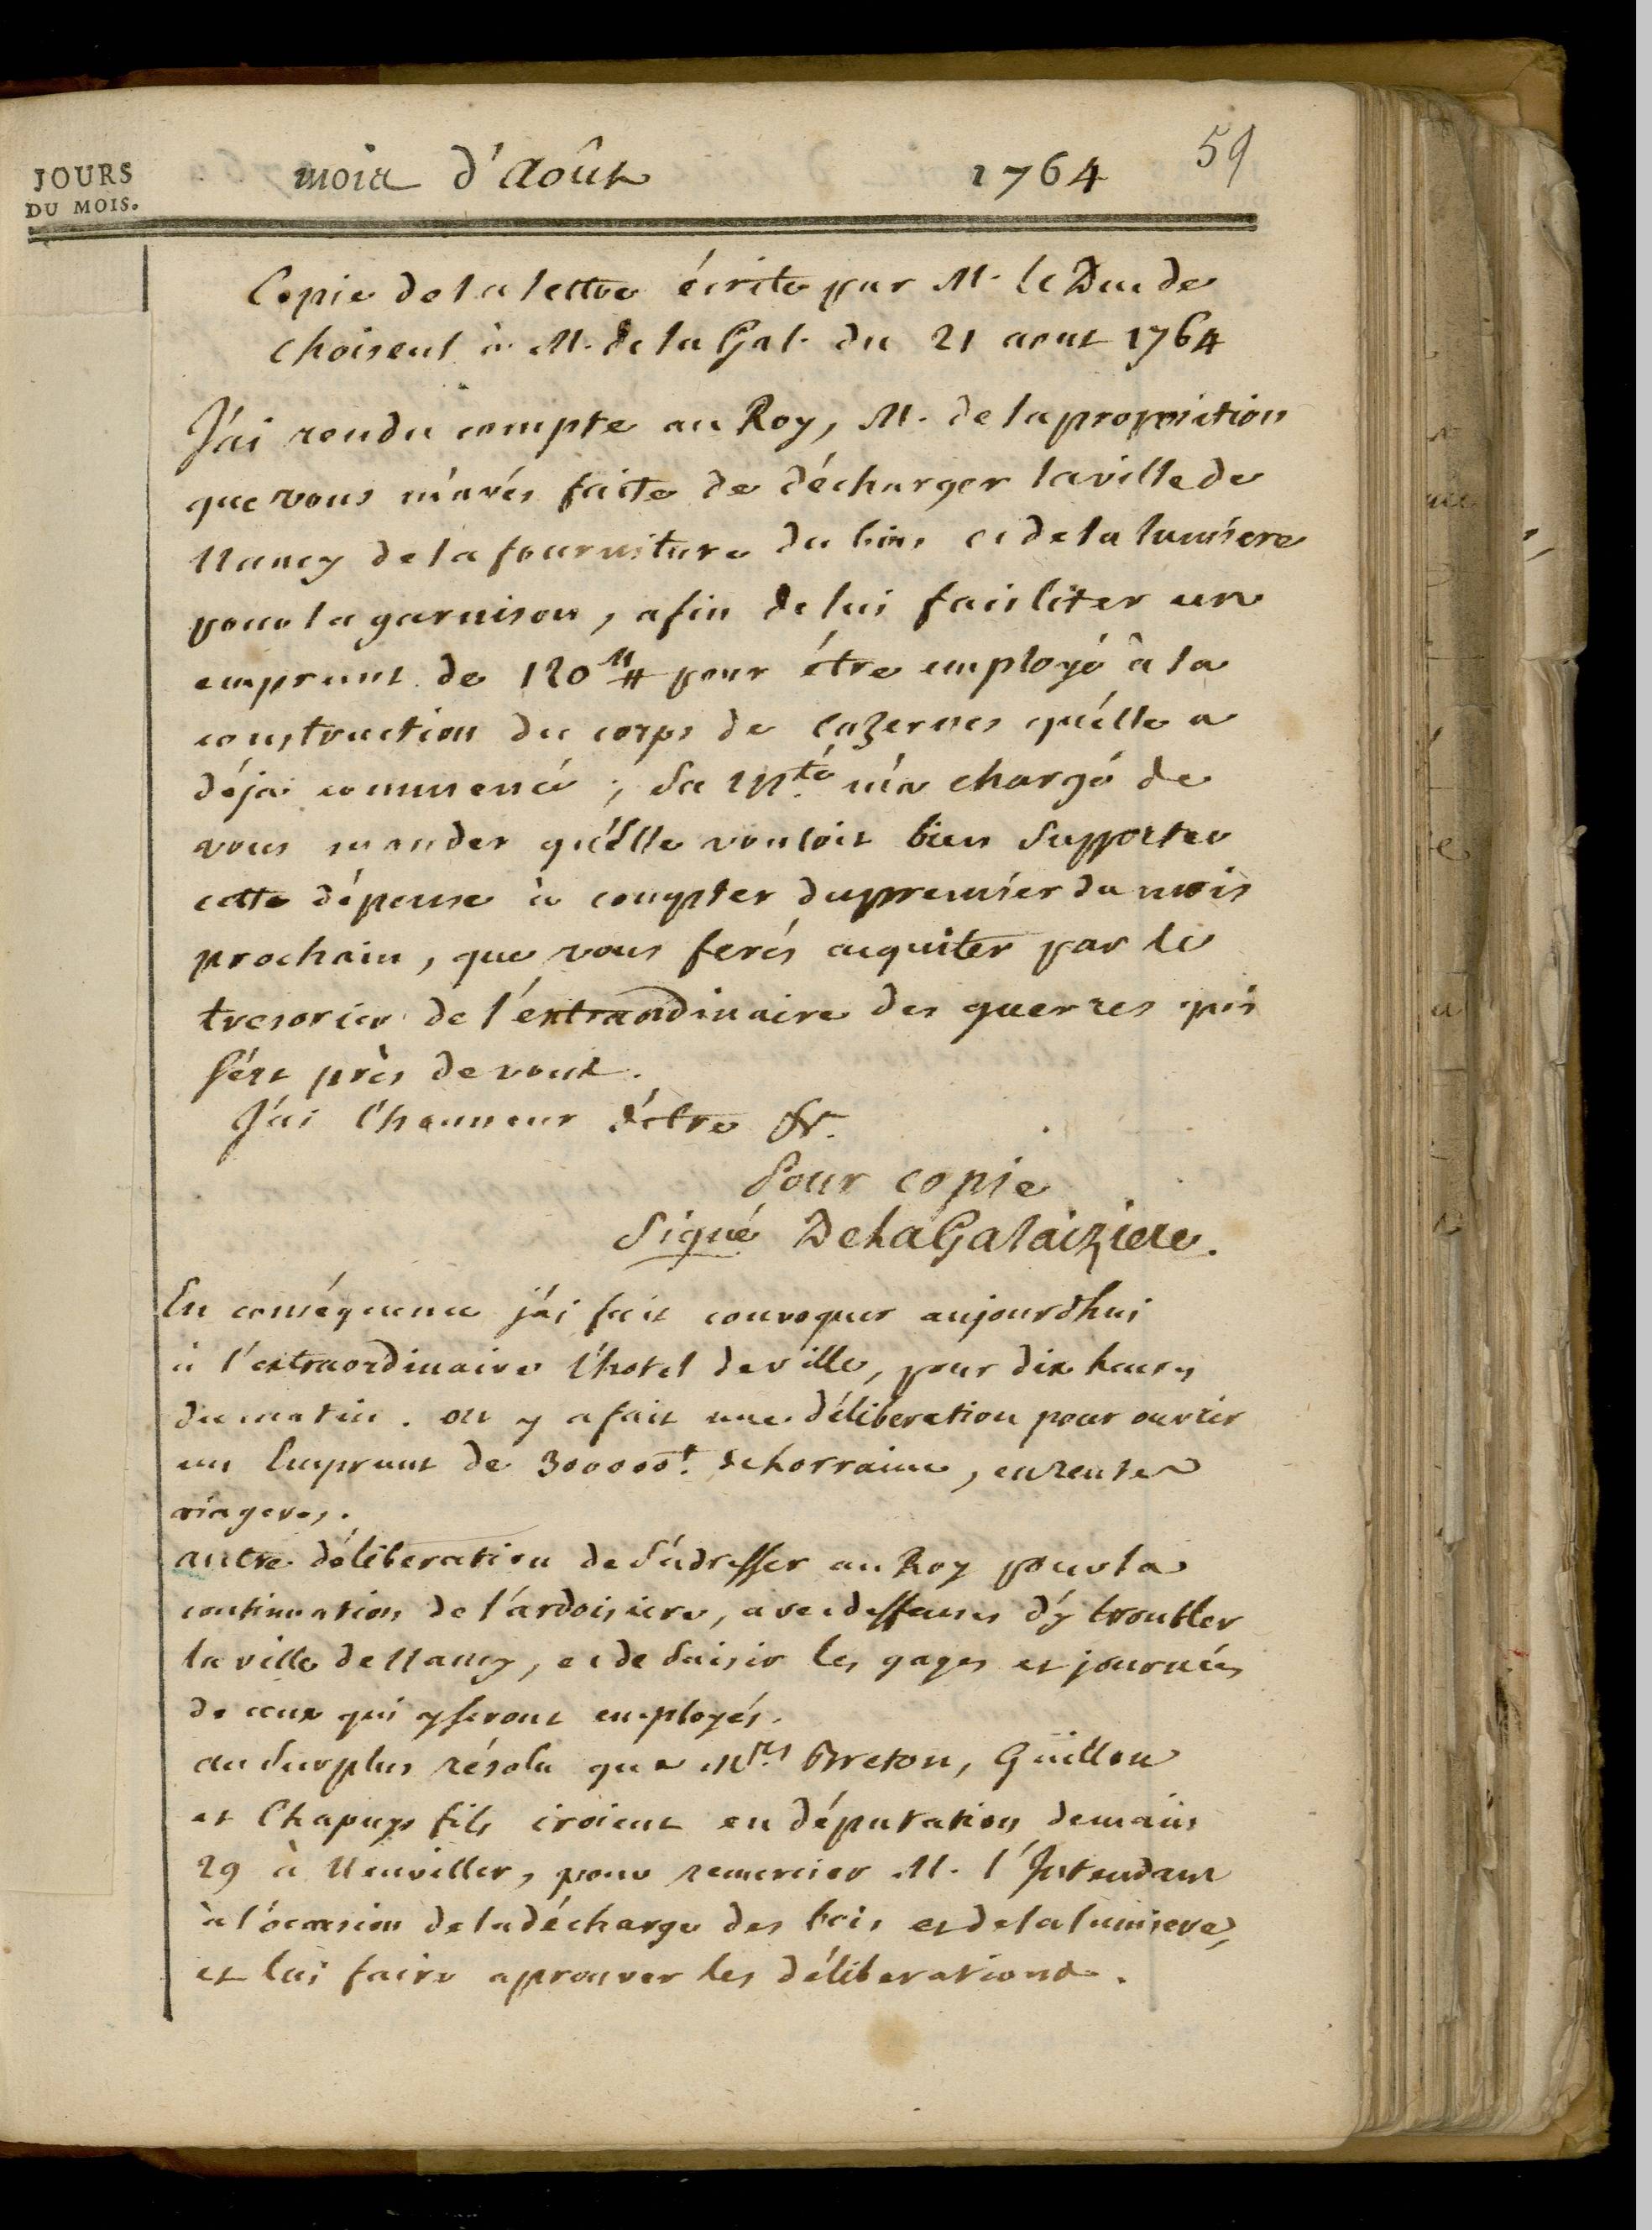 59
JOURS
DU MOIS.
mois d'Août 1764
Copie de la lettre écrite par M. le Duc de
choiseul à M. de la Gal. du 21 aout 1764
J'ai rendu compte au Roy, M. de la proposition
que vous m'avés faite de décharger la ville de
Nancy de la fourniture du bois et de la lumiere
pour la garnison, afin de lui faciliter un
emprunt de 120 M ₶ pour être employé à la
construction du corps de cazernes qu'elle a
déja commencé ; Sa M.té m'a chargé de
vous mander qu'Elle vouloit bien Supporter
cette dépense à compter du premier du mois
prochain, que vous ferés acquiter par le
tresorier de l'éxtraordinaire des guerres qui
Sert près de vous.
J'ai l'honneur d'être &c.
Pour copie
Signé De La Galaiziere.
En conséquence j'ai fait convoquer aujourd'hui
à l'extraordinaire l'hotel de ville, pour dix heures
du matin. on y a fait une déliberation pour ouvrir
un Emprunt de 300000 t. de Lorraine, en rentes
viageres.
autre déliberation de S'adresser au Roy pour la
continuation de l'ardoisiere, avec deffenses d'y troubler
la ville de Nancy, et de Saisir les gages et journées
de ceux qui y seront employés.
au Surplus résolu que M.rs Breton, Guillon
et Chapuys fils iroient en députation demain
29 à Neuviller, pour remercier M. l'Intendant
à l'ocasion de la décharge des bois et de la lumiere,
et lui faire aprouver les déliberations.